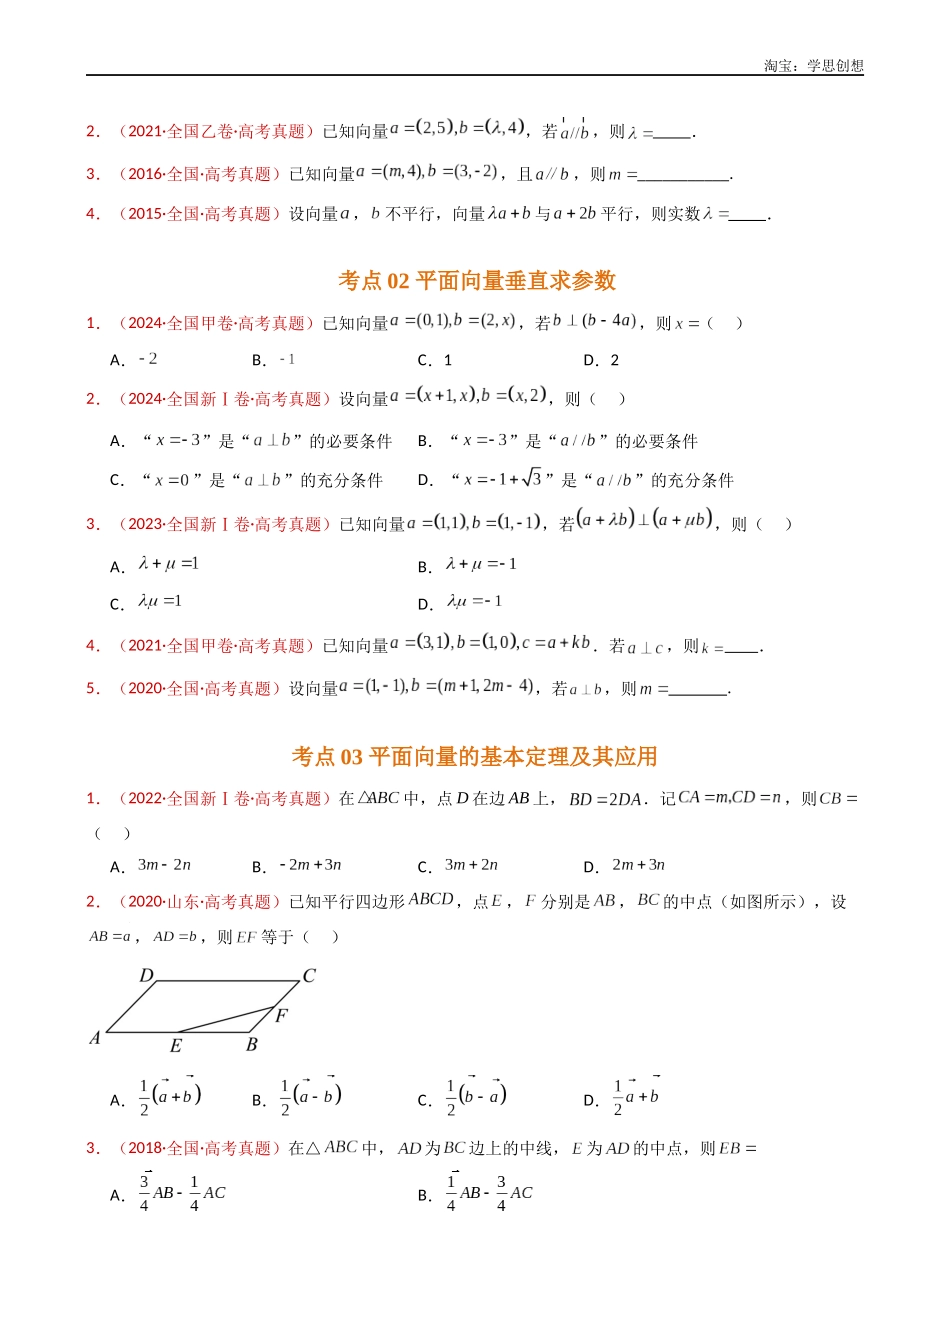 淘宝：学思创想
2．（2021·全国乙卷·高考真题）已知向量a=(2,5),b=(λ,4)，若a//b，则λ=_____．
3．（2016·全国·高考真题）已知向量a=(m,4),b=(3,-2)，且a∥b，则m=___________.
4．（2015·全国·高考真题）设向量a，b不平行，向量λa+b与a+2b平行，则实数λ=_____．
考点 02 平面向量垂直求参数
1．（2024·全国甲卷·高考真题）已知向量a=(0,1),b=(2,x)，若b⊥(b-4a)，则x=（ ）
A．-2 B．-1 C．1 D．2
2．（2024·全国新Ⅰ卷·高考真题）设向量a=(x+1,x),b=(x,2)，则（ ）
A．“x=-3”是“a⊥b”的必要条件 B．“x=-3”是“a//b”的必要条件
C．“x=0”是“a⊥b”的充分条件 D．“x=-1+√3”是“a//b”的充分条件
3．（2023·全国新Ⅰ卷·高考真题）已知向量a=(1,1),b=(1,-1)，若(a+λb)⊥(a+μb)，则（ ）
A．λ+μ=1 B．λ+μ=-1
C．λμ=1 D．λμ=-1
4．（2021·全国甲卷·高考真题）已知向量a=(3,1),b=(1,0),c=a+kb．若a⊥c，则k=____．
5．（2020·全国·高考真题）设向量a=(1,-1),b=(m+1,2m-4)，若a⊥b，则m=_______.
考点 03 平面向量的基本定理及其应用
1．（2022·全国新Ⅰ卷·高考真题）在△ABC中，点D在边AB上，BD=2DA．记CA=m,CD=n，则CB=
（ ）
A．3m-2n B．-2m+3n C．3m+2n D．2m+3n
2．（2020·山东·高考真题）已知平行四边形ABCD，点E，F分别是AB，BC的中点（如图所示），设
AB=a，AD=b，则EF等于（ ）
D C
F
A E B
A．1/2(a+b) B．1/2(a-b) C．1/2(b-a) D．1/2a+b
3．（2018·全国·高考真题）在△ABC中，AD为BC边上的中线，E为AD的中点，则EB=
A．3/4AB-1/4AC B．1/4AB-3/4AC